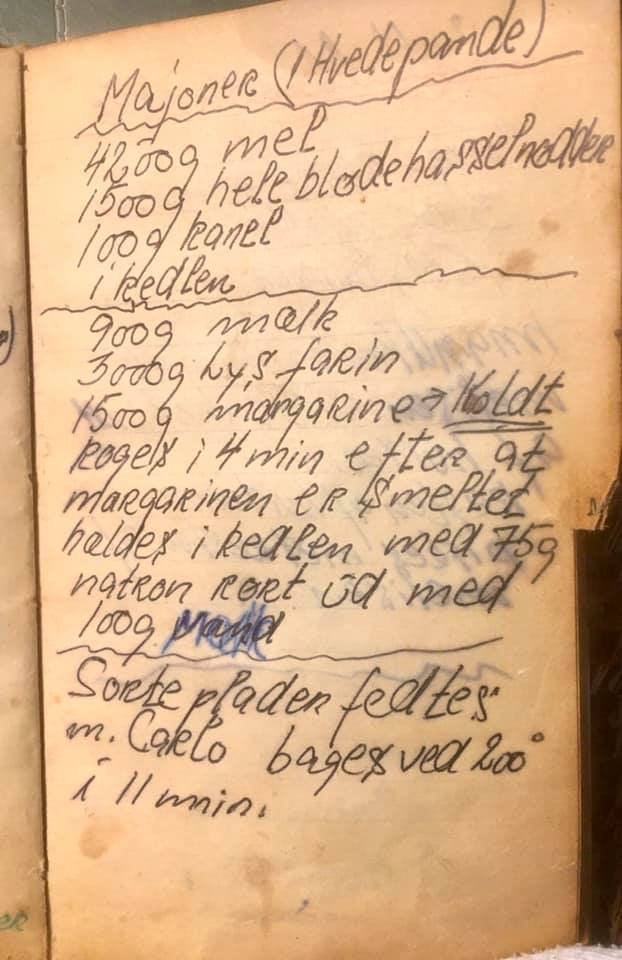 Majoner (1 Hvedepande)
4200g mel
1500g hele blødehasselnødder
100g kanel
i kedlen
900g mælk
3000g Lys farin
1500g margarine → Koldt
koges i 4 min efter at
margarinen er smeltet
heldes i kedlen med 75g
natron rørt ud med
100g
Sorte plader fedtes
m. Carlo bages ved 200°
i 11 min.